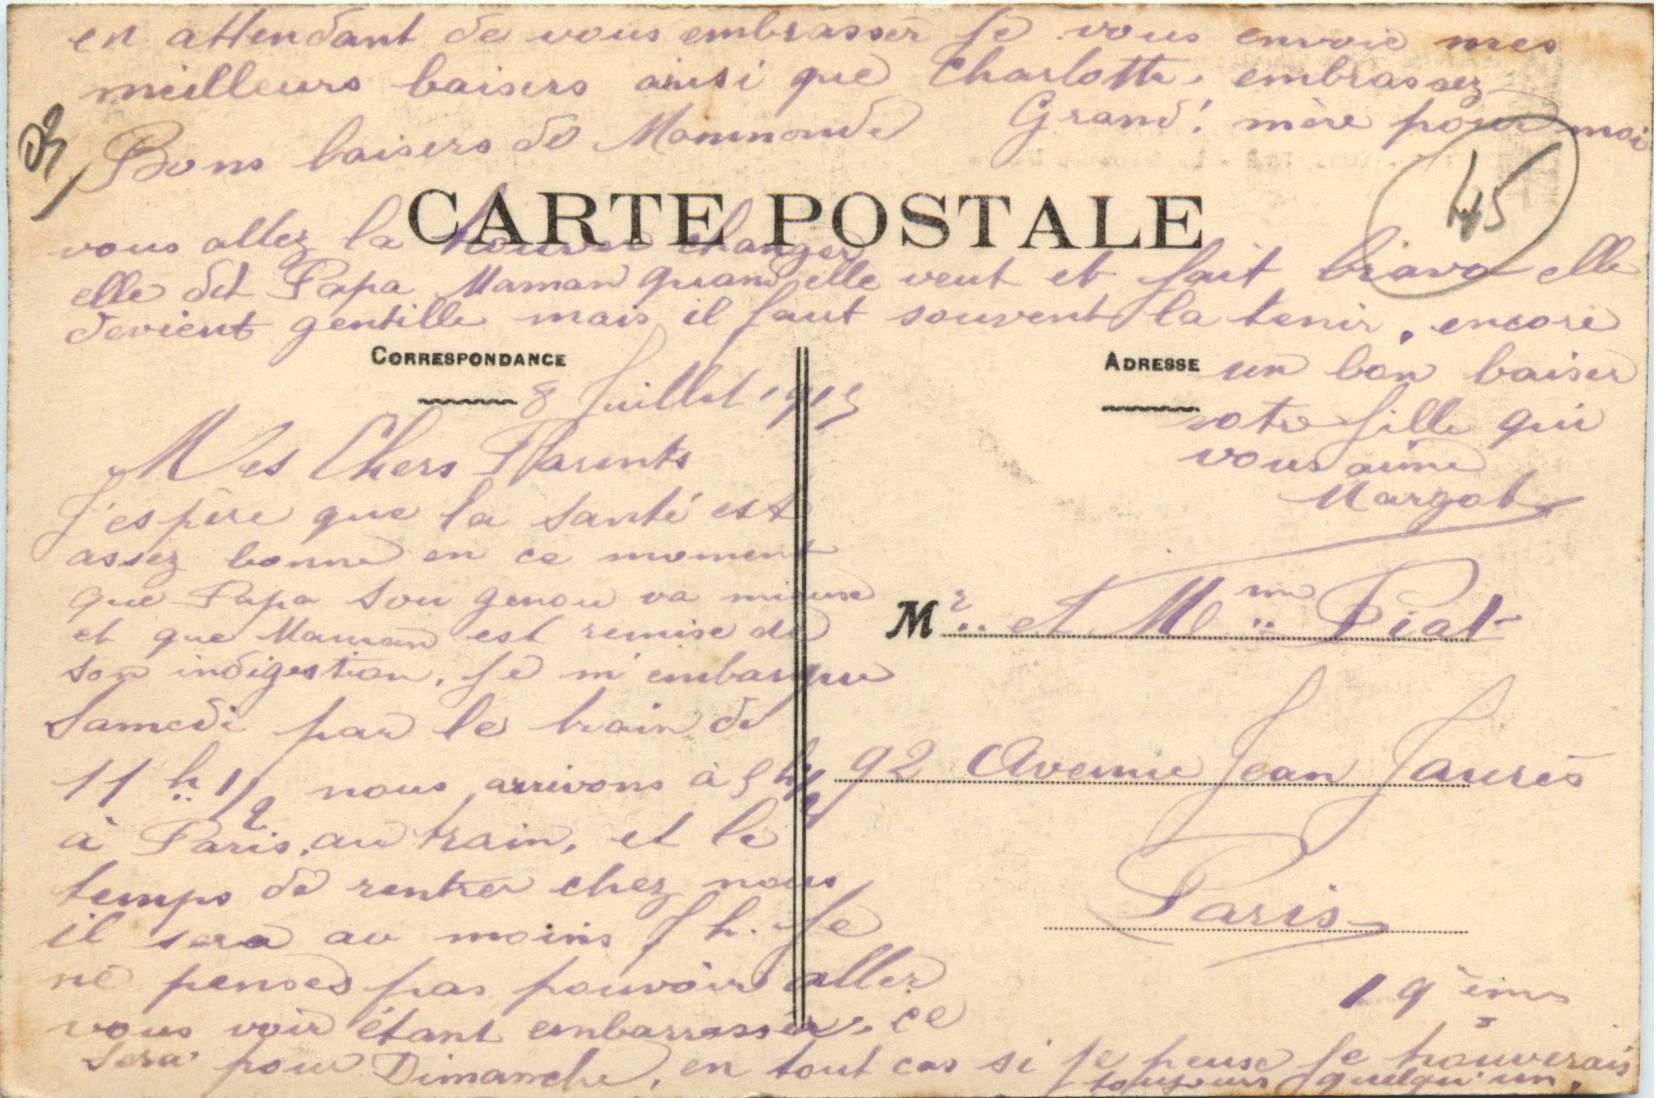 en attendant de vous embrasser je vous envoie mes
meilleurs baisers ainsi que Charlotte. embrassez
Grand' mère pour moi
Bons baisers de Mammonde
45
CARTE POSTALE
vous allez la trouver changer
elle dit Papa Maman quand elle veut et fait bravo elle
devient gentille mais il faut souvent la tenir. encore
CORRESPONDANCE
ADRESSE
un bon baiser
votre fille qui
vous aime
Margot
8 Juillet 1915
Mes Chers Parents
J'espère que la santé est
assez bonne en ce moment
que Papa son genou va mieux
et que Maman est remise de
son indigestion. Je m'embarque
Samedi par le train de
11 h 1/2 nous arrivons à 5 h 1/2
à Paris, au train, et le
temps de rentrer chez nous
il sera au moins 7 h. Je
ne penses pas pouvoir aller
vous voir étant embarrasser. ce
sera pour Dimanche, en tout cas si je peuse je trouverais
toujours quelqu'un.
Mr.. et Mme Piat
92 Avenue Jean Jaurès
Paris
19ème